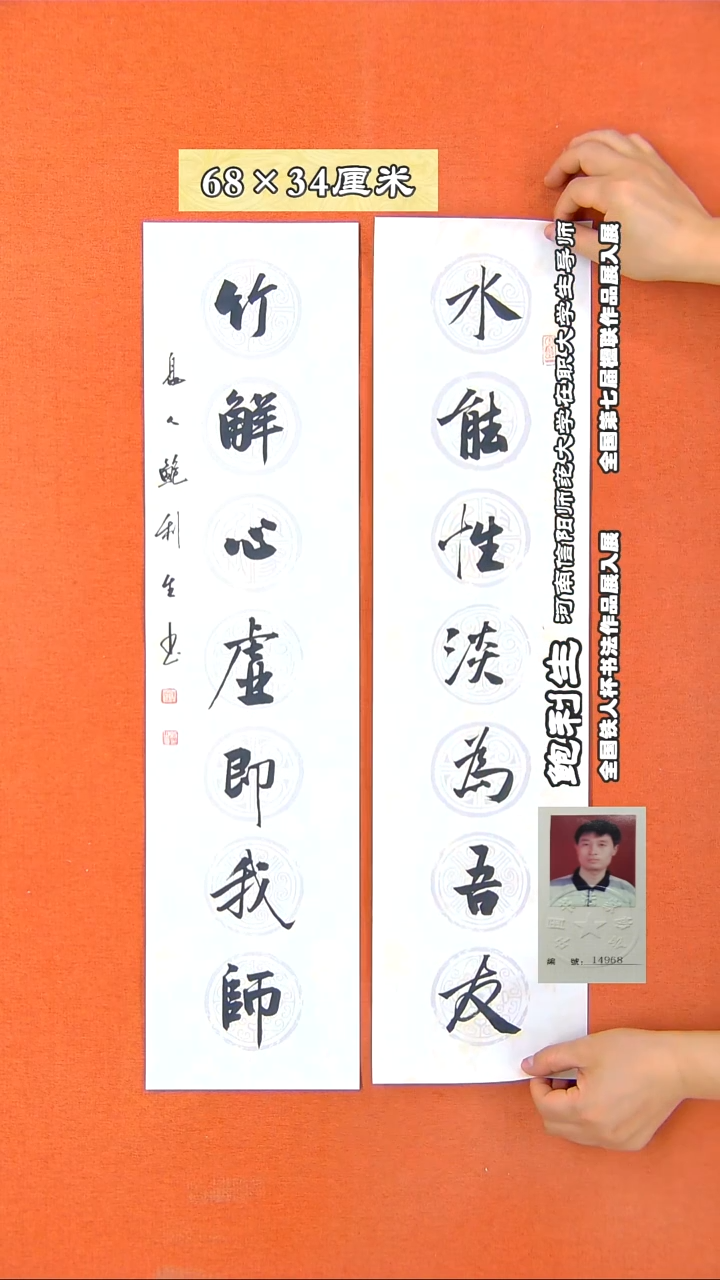 68×34厘米
水能性淡為吾友
竹解心虛即我師
息人鲍利生书
鲍利生
河南信阳师范大学在职大学生导师
全国第七届楹联作品展入展
全国铁人杯书法作品展入展
編 號: 14968